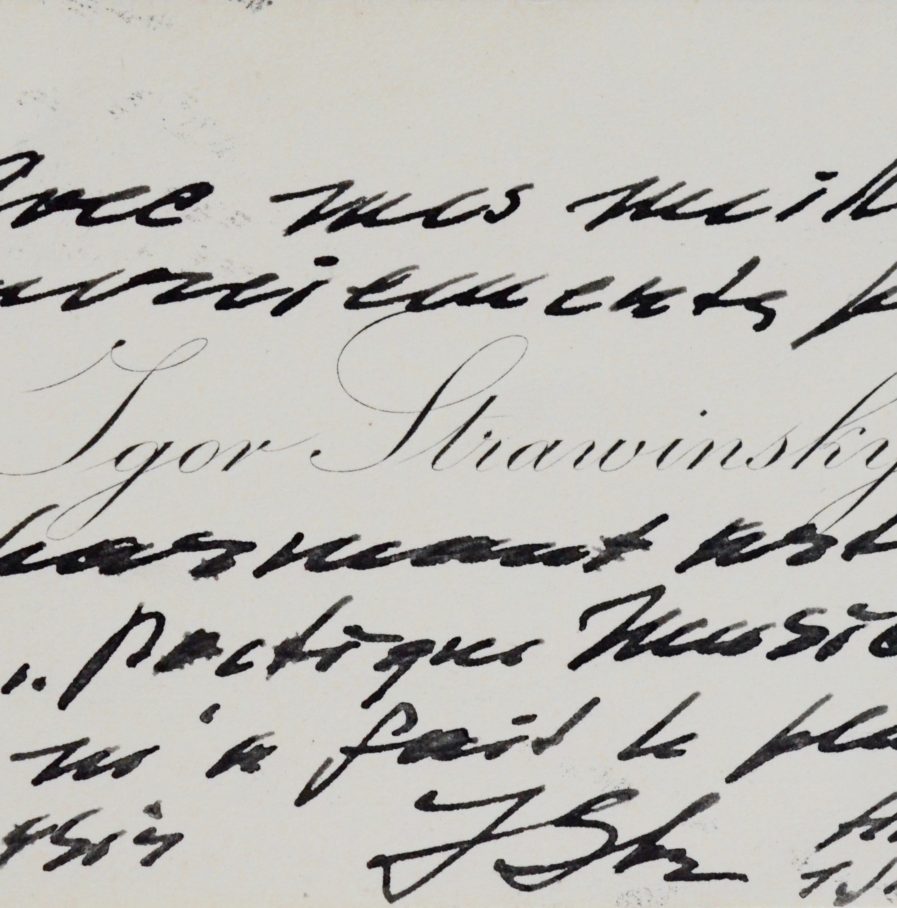 Avec mes meill
remerciements p
Igor Strawinsky
harmant art
„ Poétique Music
m'a fait le pla
IStr